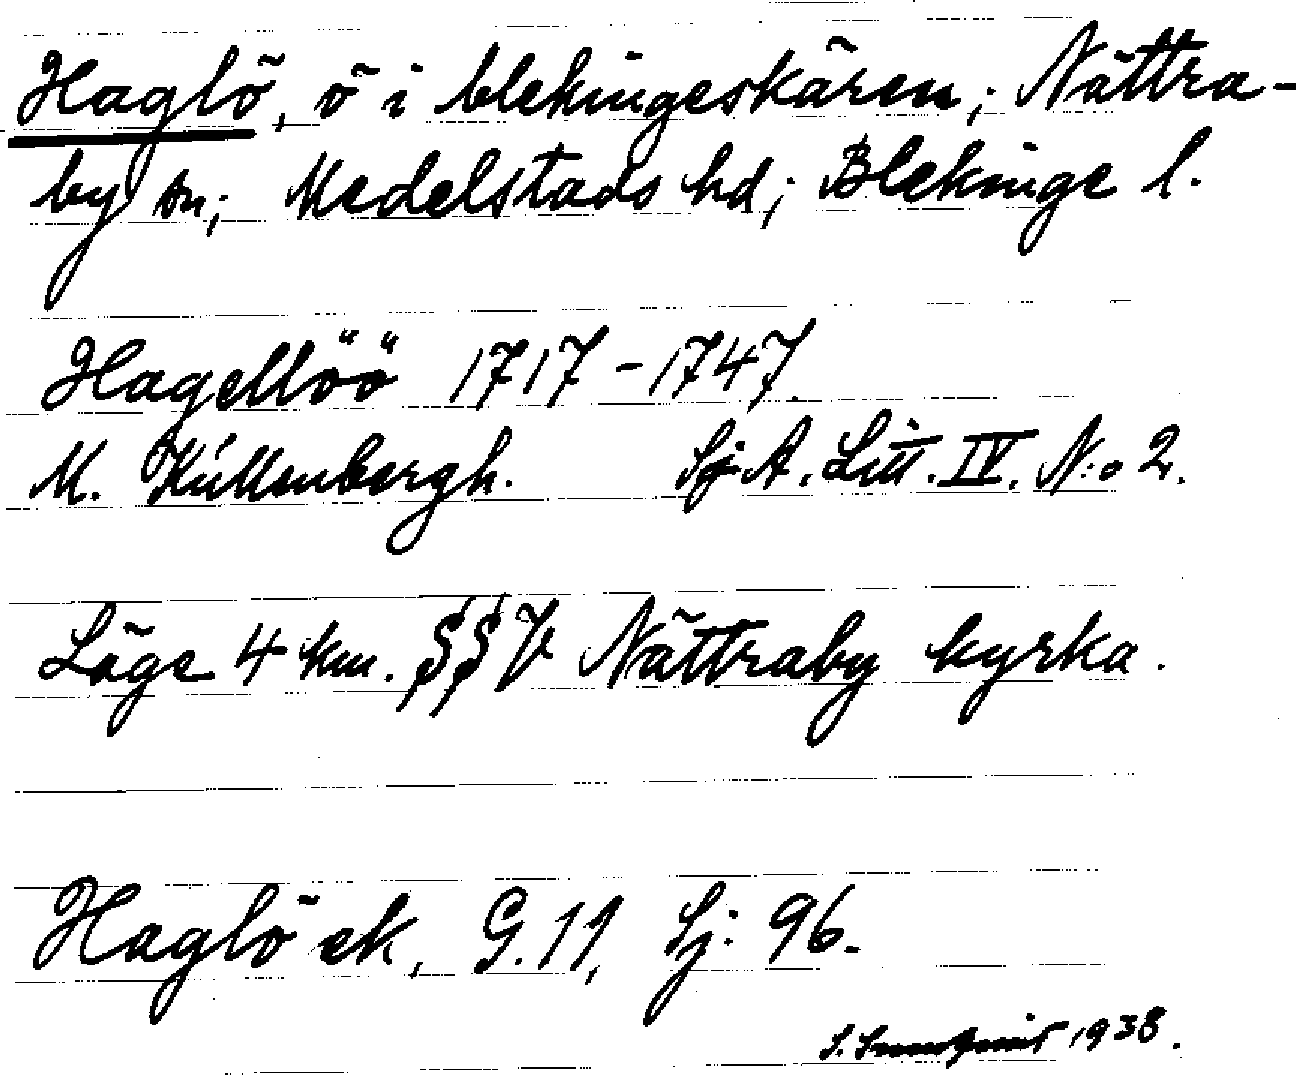 Haglö, ö i blekingeskären; Nättra-
by sn; Medelstads hd; Blekinge l.
Hagellöö 1717-1747.
M. Küllenbergh. Sj A. Litt. IV. N:o 2.
Läge 4 km. SSV Nättraby kyrka.
Haglö ek, G. 11, Sj: 96.
S. 1938.